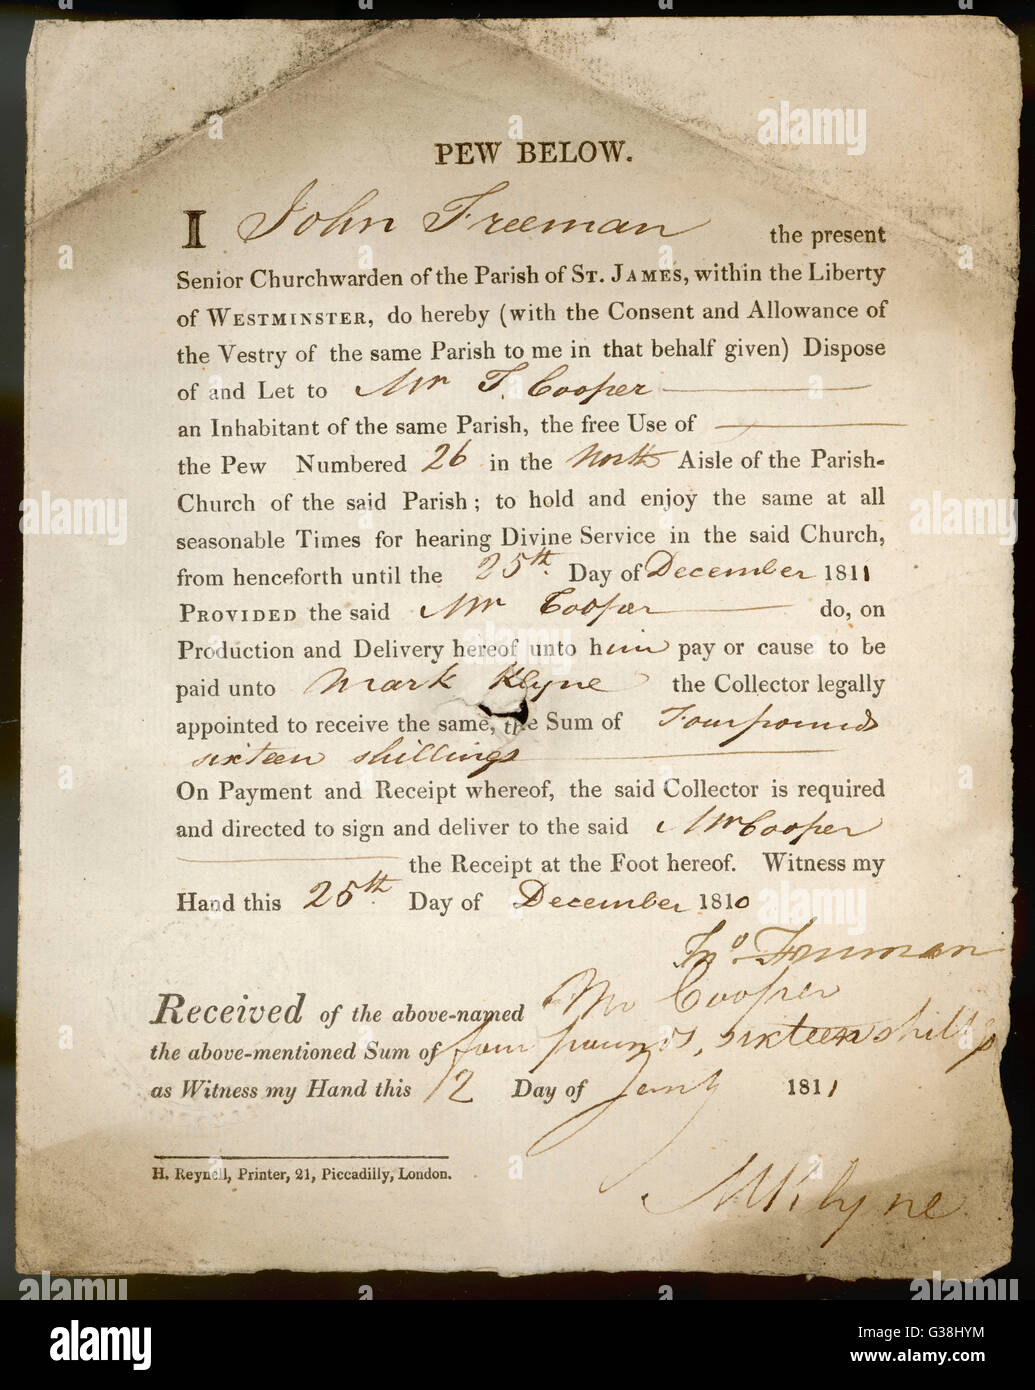 PEW BELOW.
I John Freeman the present
Senior Churchwarden of the Parish of ST. JAMES, within the Liberty
of WESTMINSTER, do hereby (with the Consent and Allowance of
the Vestry of the same Parish to me in that behalf given) Dispose
of and Let to Mr T. Cooper
an Inhabitant of the same Parish, the free Use of
the Pew Numbered 26 in the North Aisle of the Parish-
Church of the said Parish; to hold and enjoy the same at all
seasonable Times for hearing Divine Service in the said Church,
from henceforth until the 25th. Day of December 1811
PROVIDED the said Mr Cooper do, on
Production and Delivery hereof unto him pay or cause to be
paid unto Mark Klyne the Collector legally
appointed to receive the same, the Sum of Four pounds
sixteen shillings
On Payment and Receipt whereof, the said Collector is required
and directed to sign and deliver to the said Mr Cooper
the Receipt at the Foot hereof. Witness my
Hand this 25th. Day of December 1810
Jno. Freeman
Received of the above-named Mr Cooper
the above-mentioned Sum of four pounds, sixteen shillgs
as Witness my Hand this 12 Day of Jany 1811
M Klyne
H. Reynell, Printer, 21, Piccadilly, London.
alamy
alamy
Image ID: G38HYM
www.alamy.com